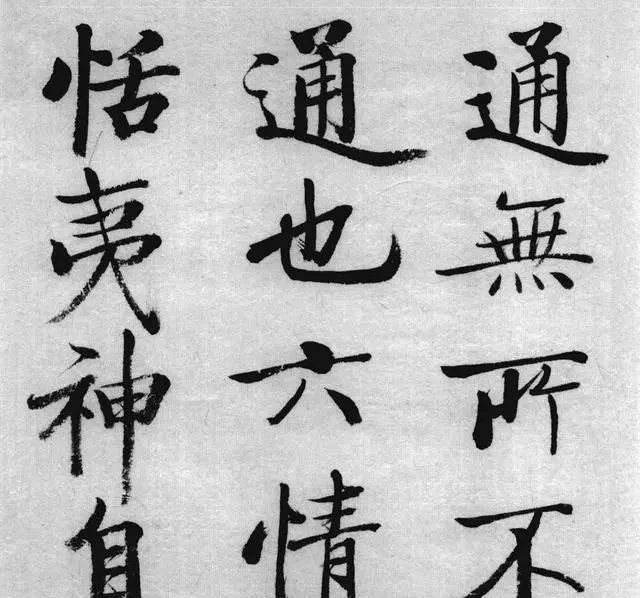 通無所不
通也六情
恬夷神自